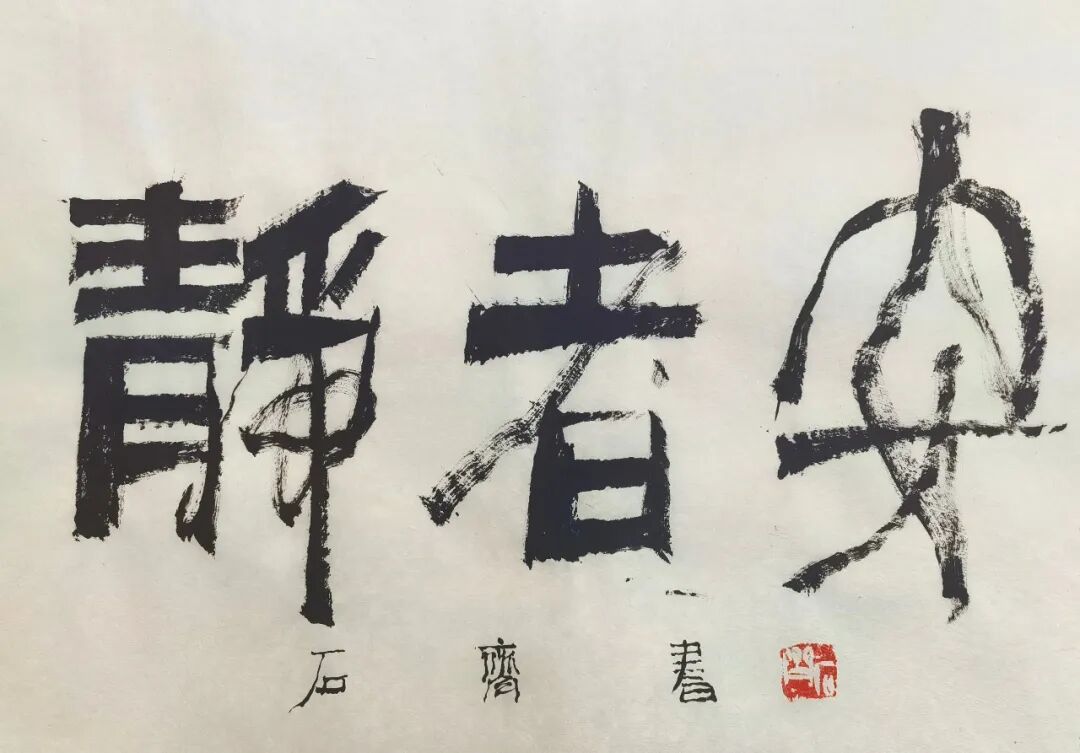 靜者安
石齊書